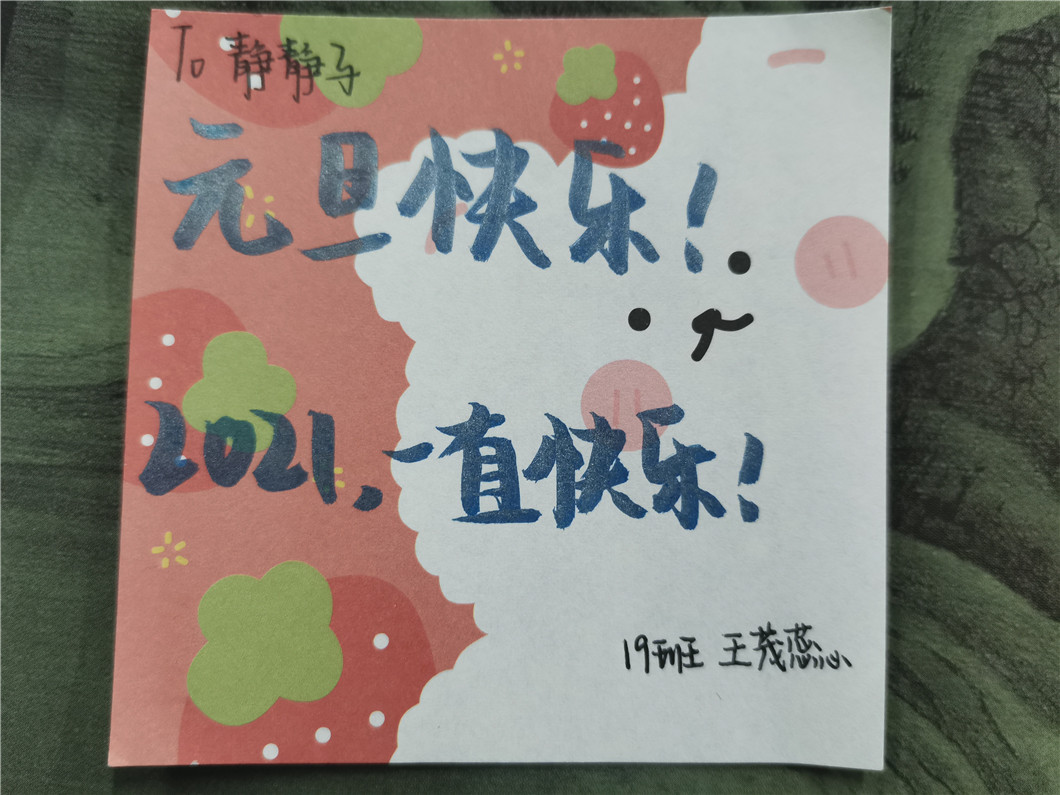 To 静静子
元旦快乐！
2021，一直快乐！
19班 王茂蕊